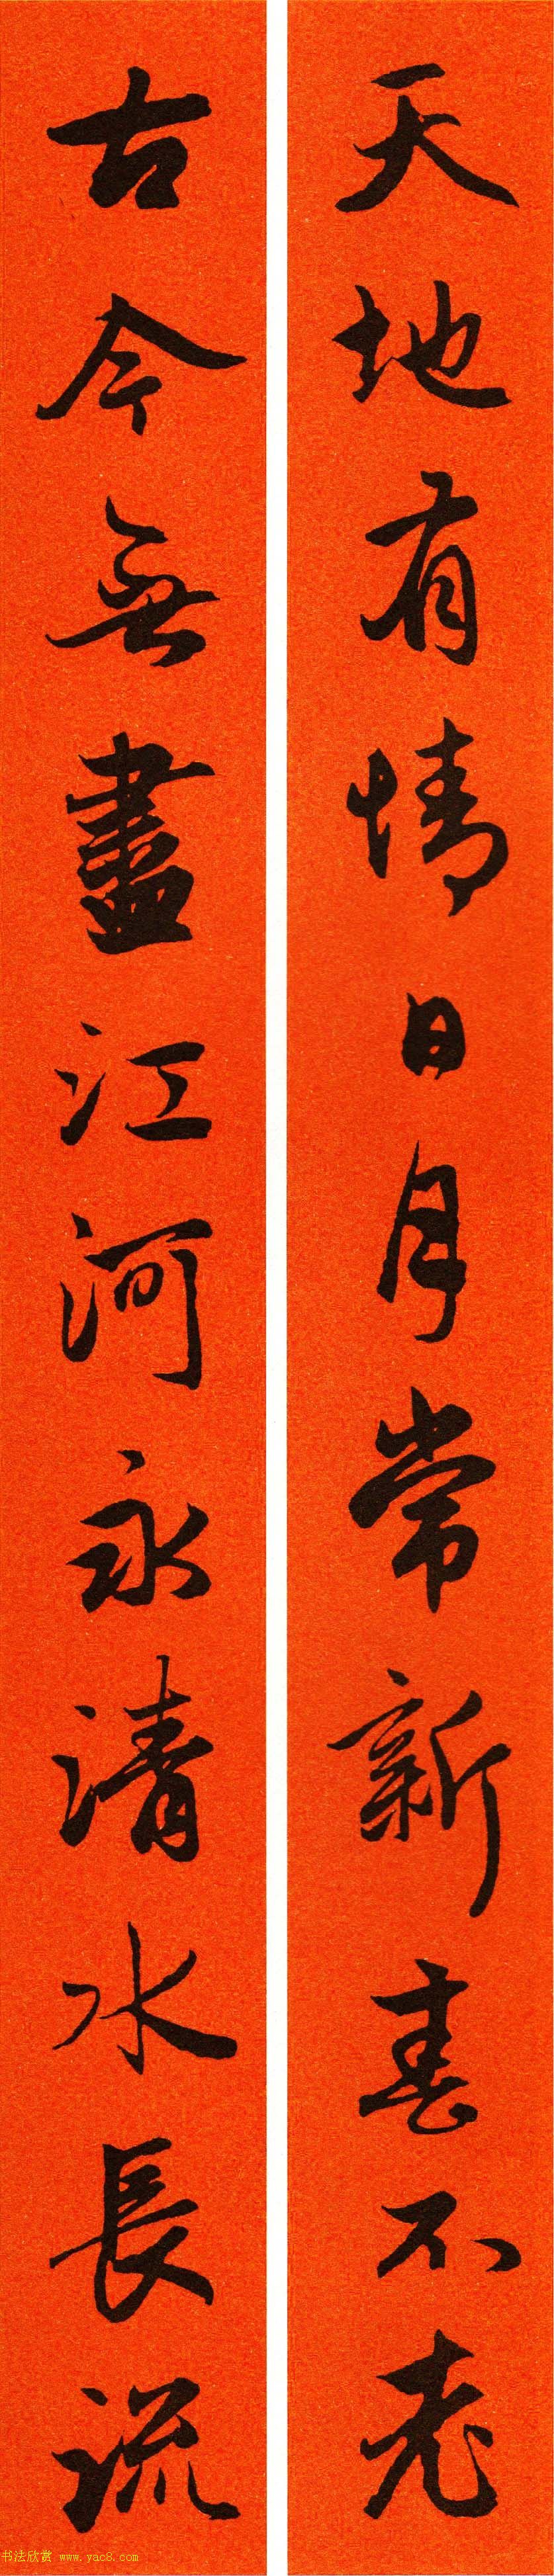 天地有情日月常新春不老
古今無盡江河永清水長流
书法欣赏 www.yac8.com